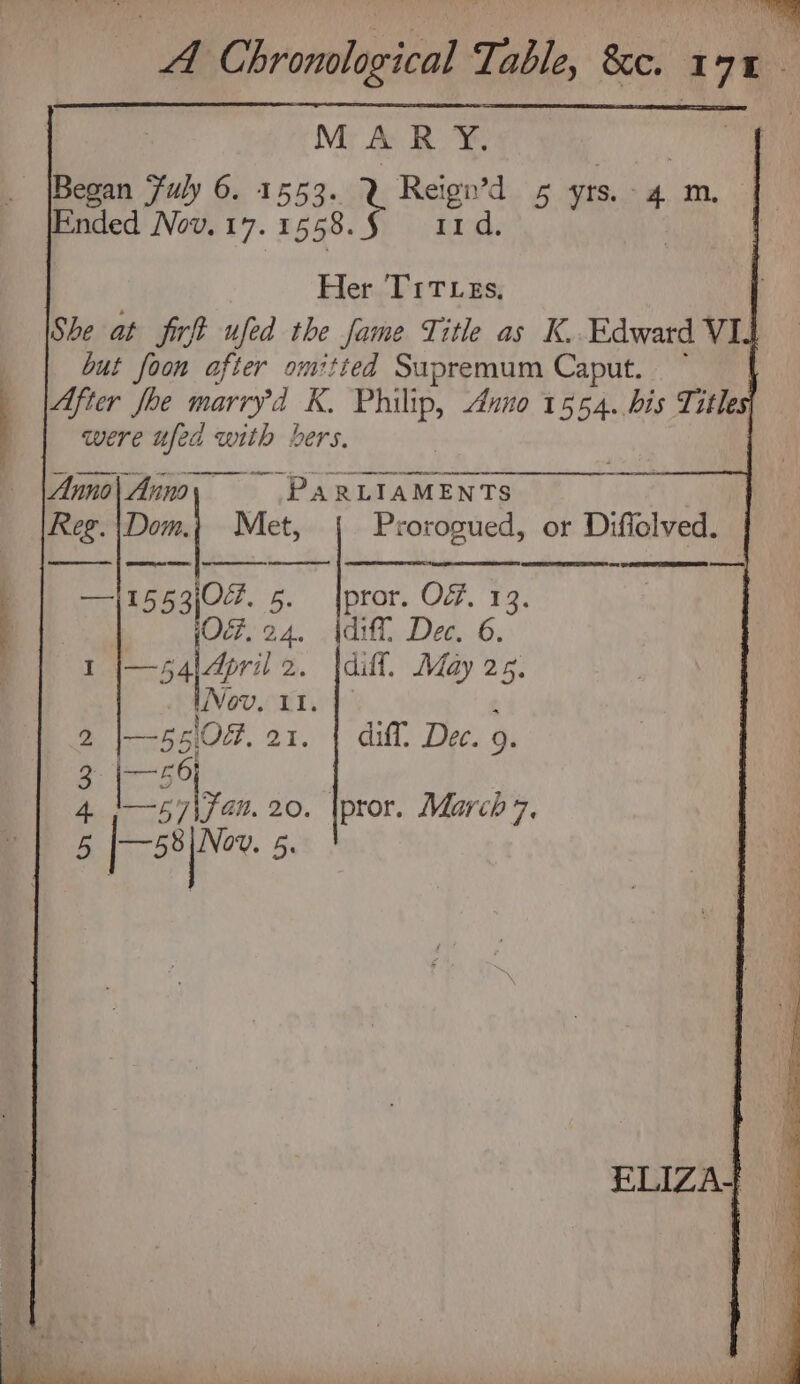 A Chronological Table, &c. 171
MARY.
Began July 6. 1553. } Reign'd 5 yrs. 4 m.
Ended Nov. 17. 1558. } 11 d.
Her TITLES.
She at firſt uſed the ſame Title as K. Edward VI.
but ſoon after omitted Supremum Caput.
After ſhe marry'd K. Philip, Anno 1554. his Titles
were uſed with hers.
Anno | Anno | PARLIAMENTS
Reg. | Dom. | Met, | Prorogued, or Diſſolved.
— | 1553 | Oct. 5. | pror. Oct. 13.
Oct. 24. | diſſ. Dec. 6.
1 | —54 | April 2. | diſſ. May 25.
Nov. 11.
2 | —55 | Oct. 21. | diſſ. Dec. 9.
3 | —56
4 | —57 | Jan. 20. | pror. March 7.
5 | —58 | Nov. 5.
ELIZA-